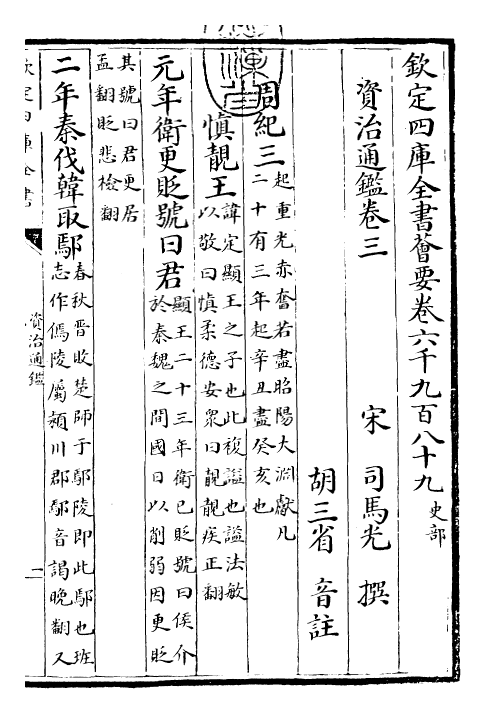 欽定四庫全書薈要卷六千九百八十九 史部
資治通鑑卷三
宋 司馬光 撰
胡三省 音註
周紀三 起重光赤奮若盡昭陽大淵獻凡二十有三年起辛丑盡癸亥也
慎靚王 諱定顯王之子也此複謚也謚法敏以敬曰慎柔德安衆曰靚靚疾正翻
元年衛更貶號曰君 顯王二十三年衛已貶號曰侯介於秦魏之間國日以削弱因更貶
其號曰君更居孟翻貶悲檢翻
二年秦伐韓取鄢 春秋晉敗楚師于鄢陵即此鄢也班志作傿陵屬潁川郡鄢音謁晚翻又
欽定四庫全書
資治通鑑
一